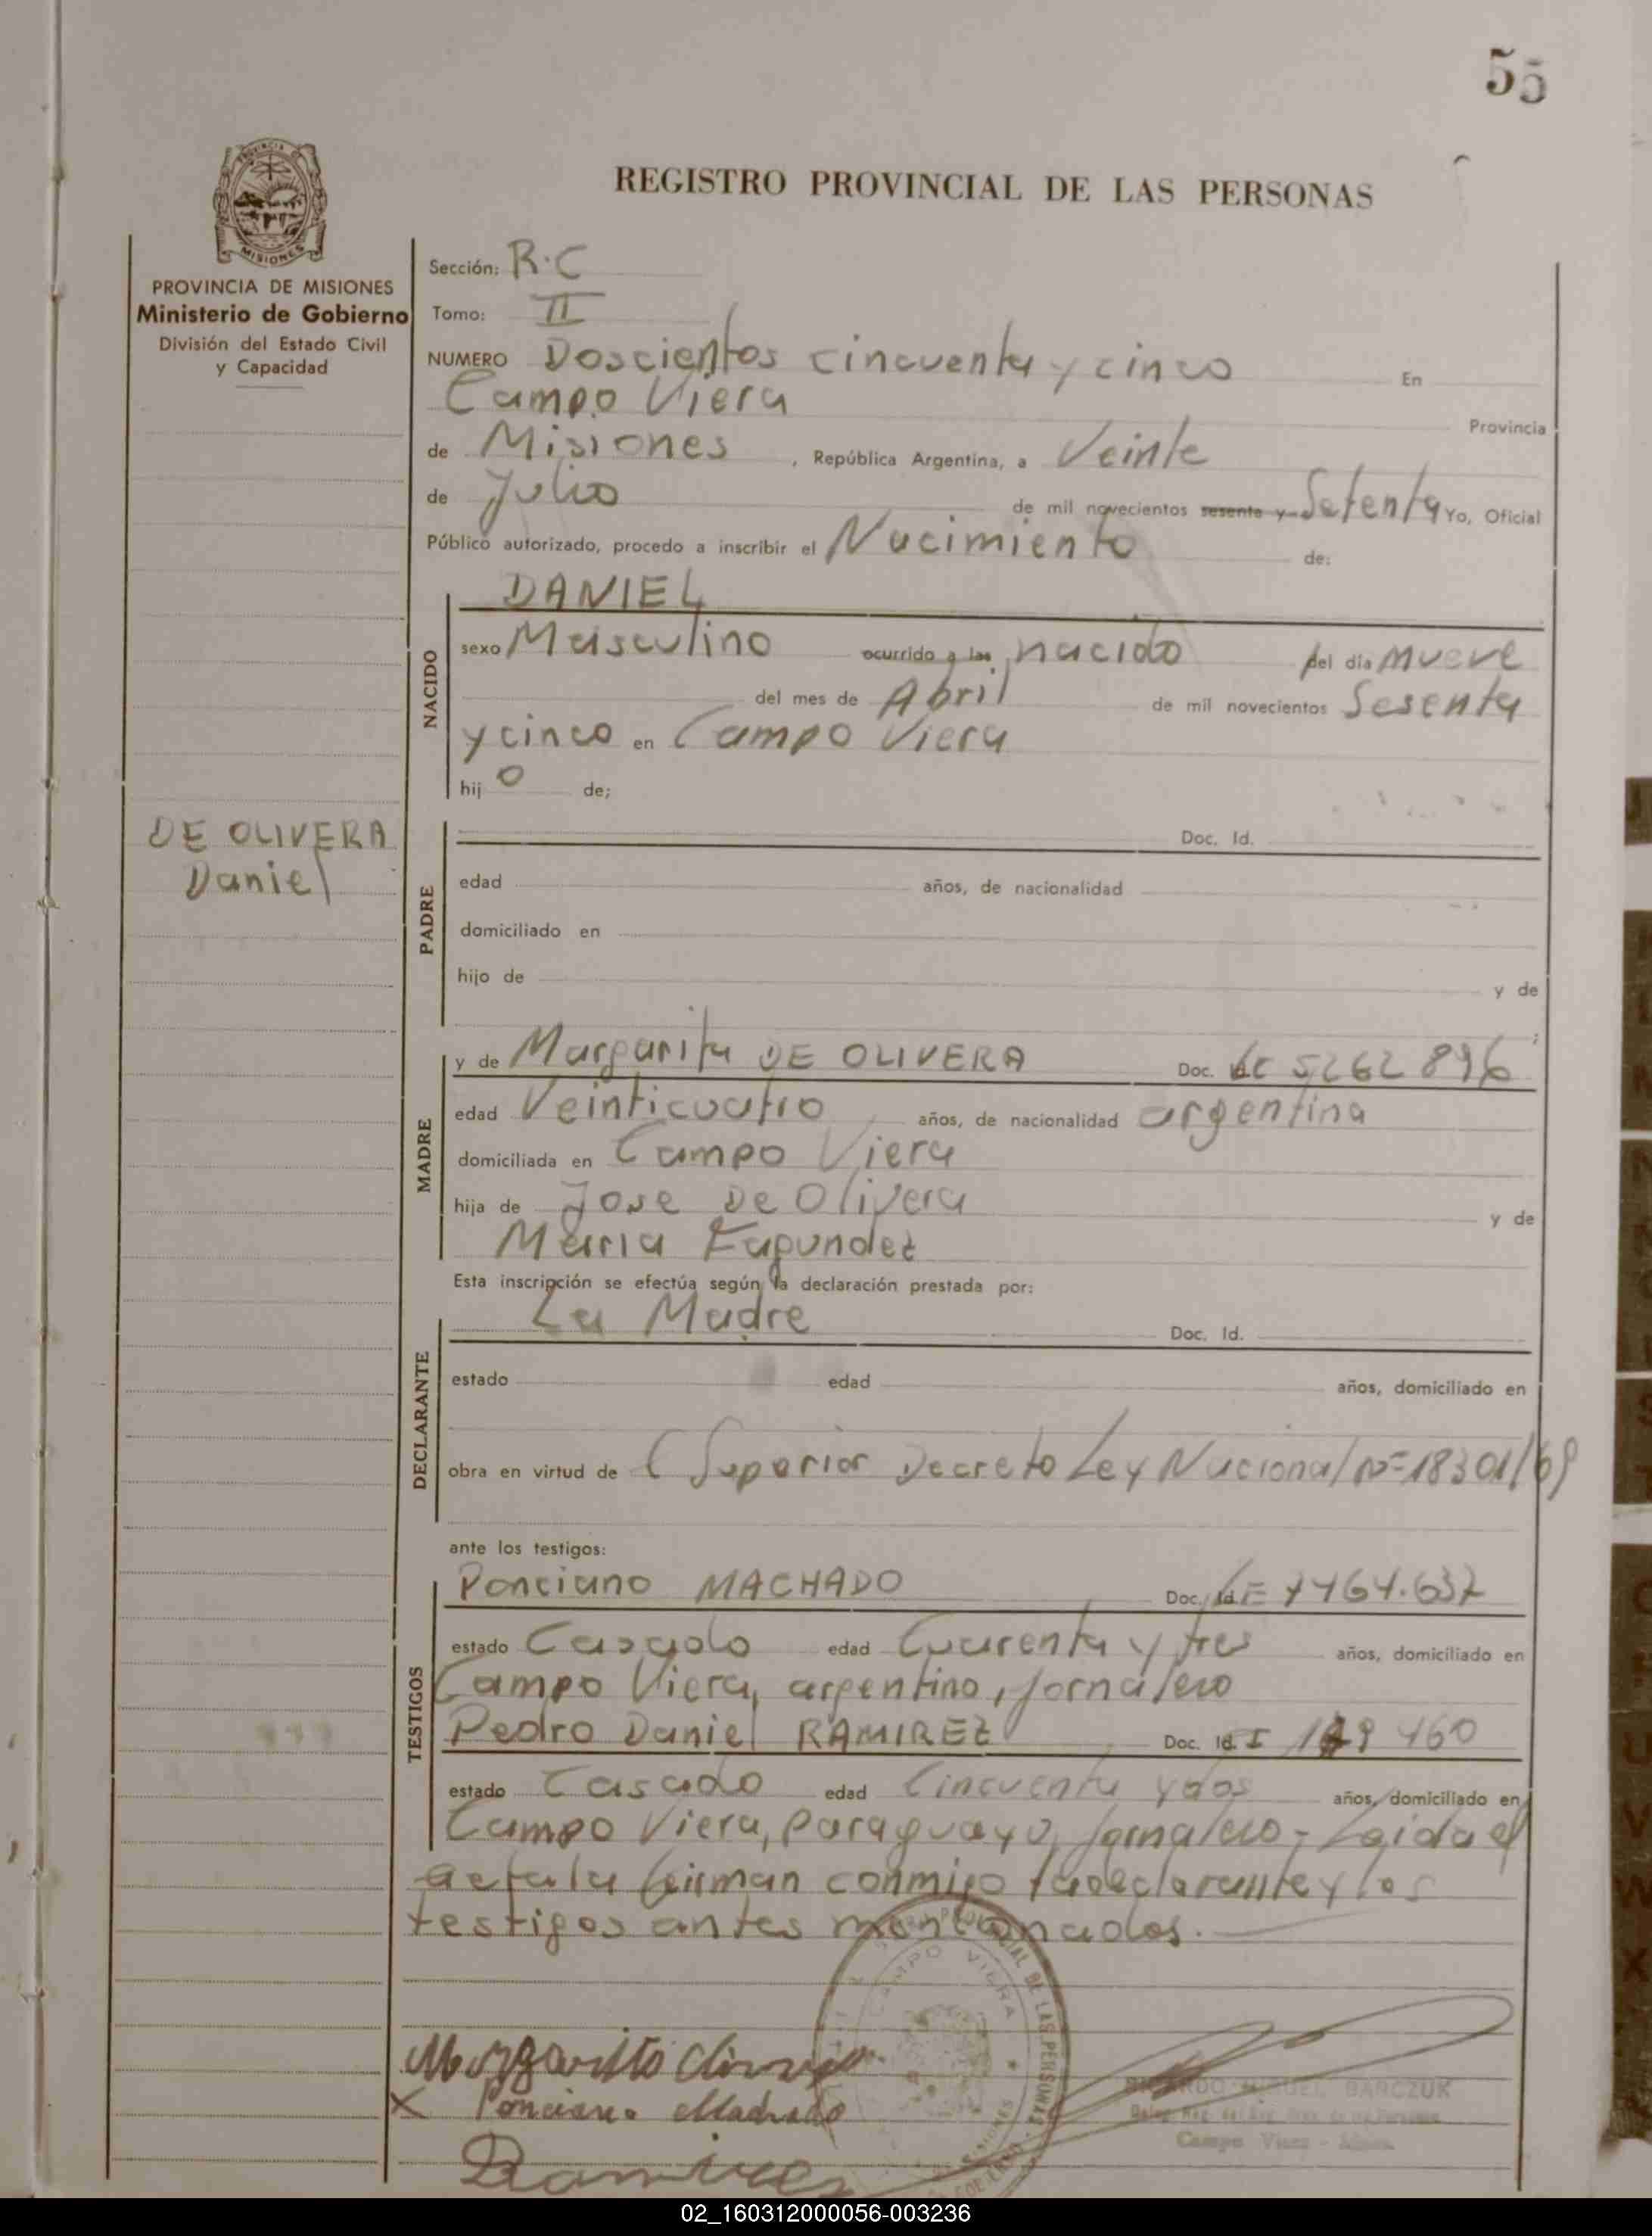 55
PROVINCIA
MISIONES
REGISTRO PROVINCIAL DE LAS PERSONAS
PROVINCIA DE MISIONES
Ministerio de Gobierno
División del Estado Civil
y Capacidad
Sección: R.C
Tomo: II
NUMERO Doscientos cincuenta y cinco En
Campo Viera Provincia
de Misiones, República Argentina, a Veinte
de Julio de mil novecientos sesenta y Setenta Yo, Oficial
Público autorizado, procedo a inscribir el Nacimiento de:
DANIEL
NACIDO
sexo Masculino ocurrido a las nacido del día nueve
del mes de Abril de mil novecientos Sesenta
y cinco en Campo Viera
hijo de;
DE OLIVERA
Daniel
PADRE
Doc. Id.
edad años, de nacionalidad
domiciliado en
hijo de y de
MADRE
y de Margarita DE OLIVERA Doc. LC 5262896
edad Veinticuatro años, de nacionalidad argentina
domiciliada en Campo Viera
hija de Jose De Olivera y de
Maria Fagundez
Esta inscripción se efectúa según la declaración prestada por:
DECLARANTE
La Madre Doc. Id.
estado edad años, domiciliado en
obra en virtud de Superior Decreto Ley Nacional Nº 18301/69
ante los testigos:
TESTIGOS
Ponciano MACHADO Doc. Id. LE 7464.637
estado Casado edad Cuarenta y tres años, domiciliado en
Campo Viera, argentino, jornalero
Pedro Daniel RAMIREZ Doc. Id. I 460
estado Casado edad Cincuenta y dos años, domiciliado en
Campo Viera, Paraguayo, jornalero - Leida el
acta la firman conmigo la declarante y los
testigos antes mencionados.
CAMPO VIERA
DE LAS PERSONAS
MISIONES
Margarita
X Ponciano Machado
MIGUEL BARCZUK
Campo Viera - Mnes.
Ramirez
02_160312000056-003236